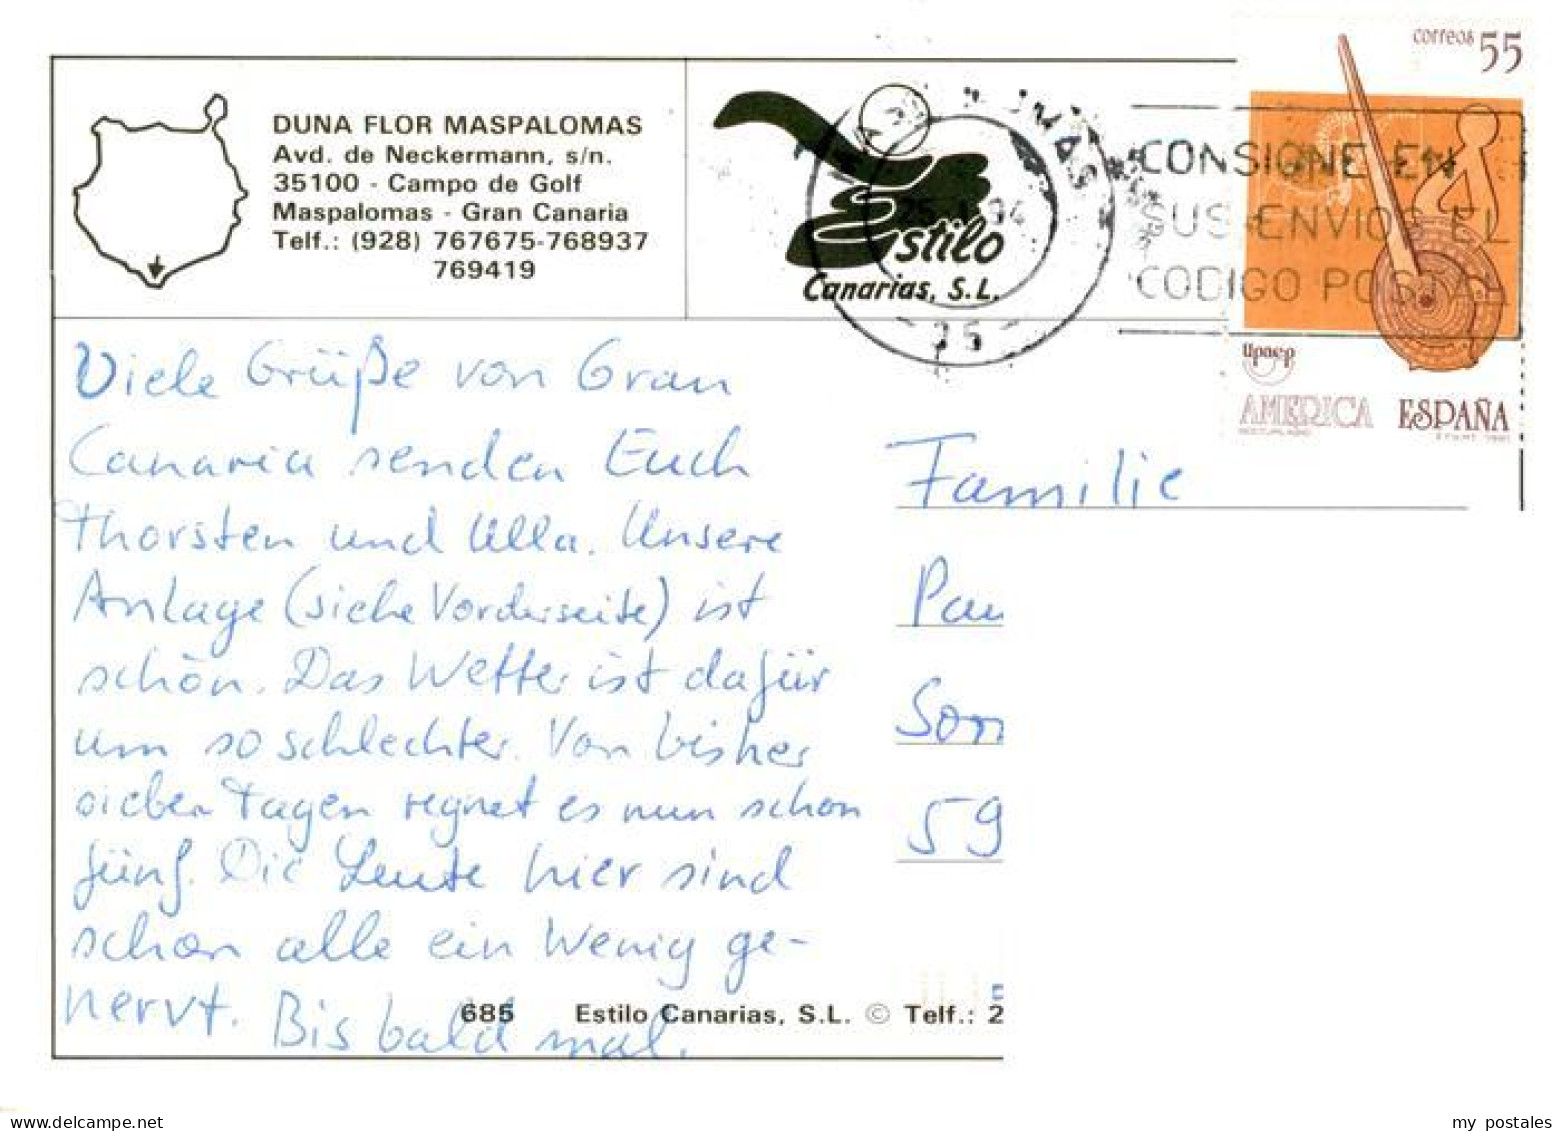 DUNA FLOR MASPALOMAS
Avd. de Neckermann, s/n.
35100 - Campo de Golf
Maspalomas - Gran Canaria
Telf.: (928) 767675-768937
769419
Estilo
Canarias, S.L.
35
CONSIGNE EN
SUS ENVIOS EL
CODIGO POSTAL
correos 55
upaep
AMERICA ESPAÑA
Viele Grüße von Gran
Canaria senden Euch
Thorsten und Ulla. Unsere
Anlage (siehe Vorderseite) ist
schön. Das Wetter ist dafür
um so schlechter. Von bisher
sieben Tagen regnet es nun schon
fünf. Die Leute hier sind
schon alle ein wenig ge-
nervt. Bis bald mal.
Familie
Pau
Son
59
685 Estilo Canarias, S.L. © Telf.: 2
my postales